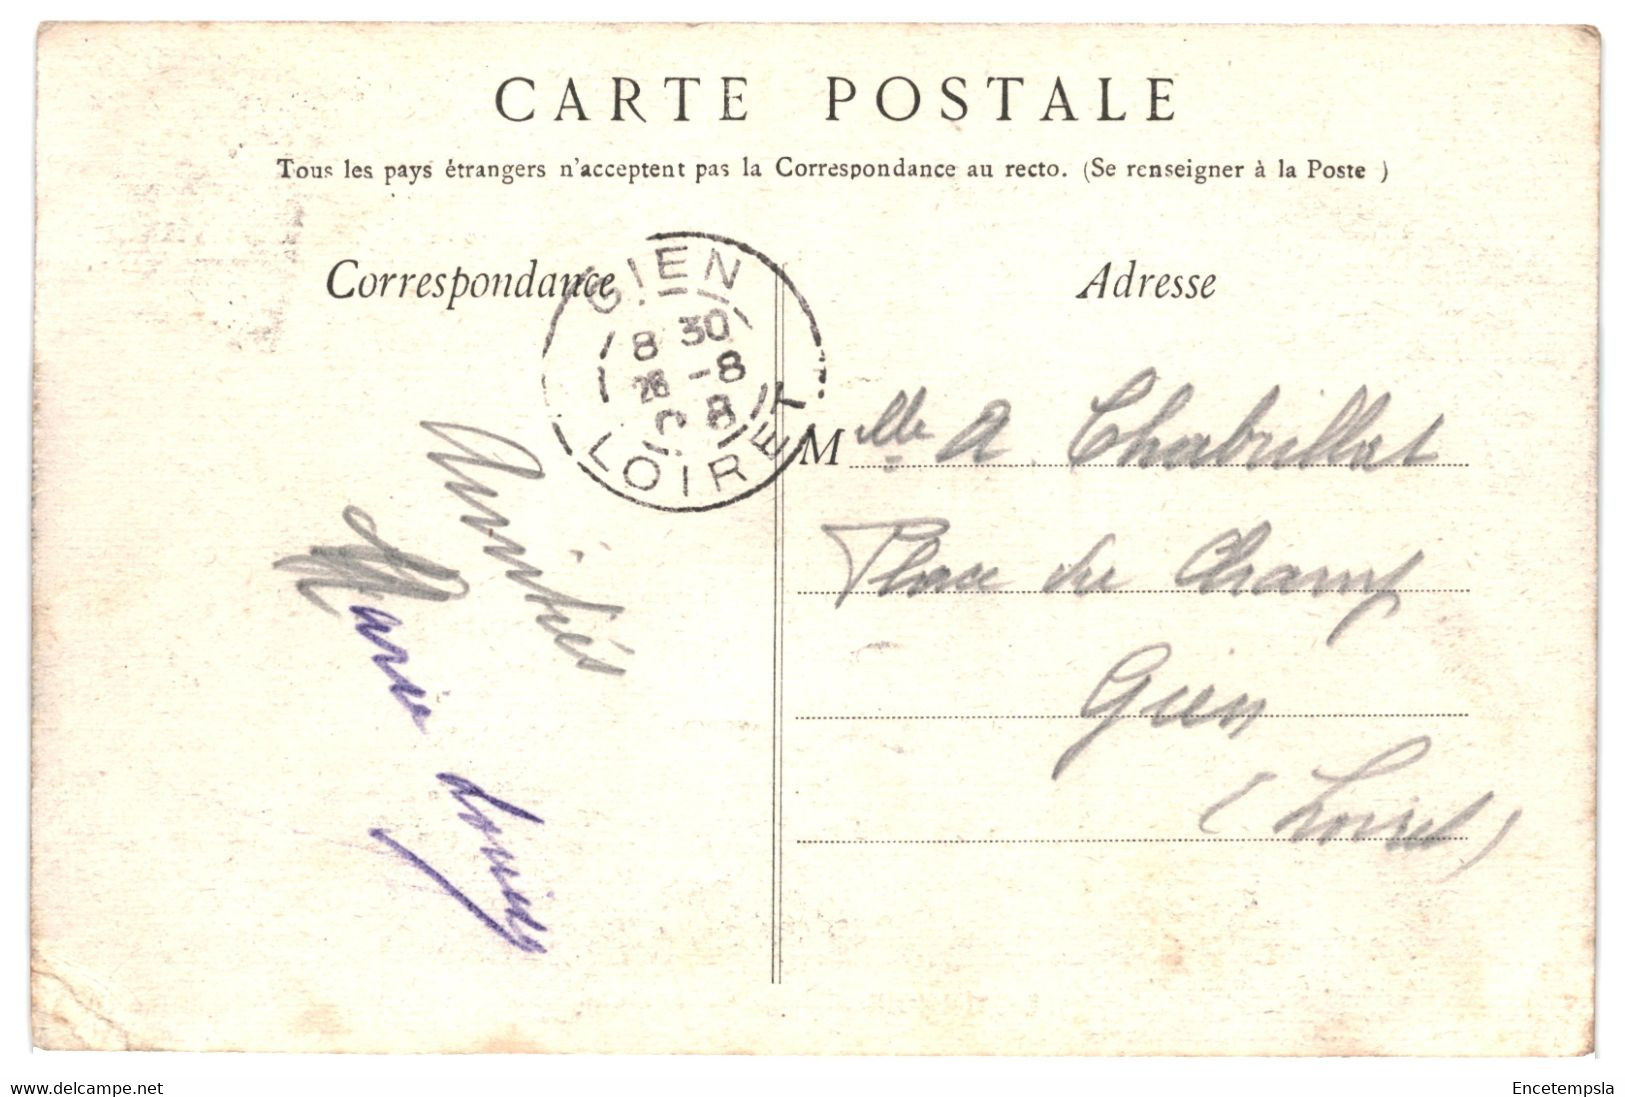 CARTE POSTALE
Tous les pays étrangers n'acceptent pas la Correspondance au recto. (Se renseigner à la Poste )
Correspondance
Adresse
GIEN
8 30
26 -8
08
LOIRET
Amitiés
Marie Louise
Mlle A. Chabrillat
Place du Champ
Gien
(Loiret)
www.delcampe.net
Encetempsla